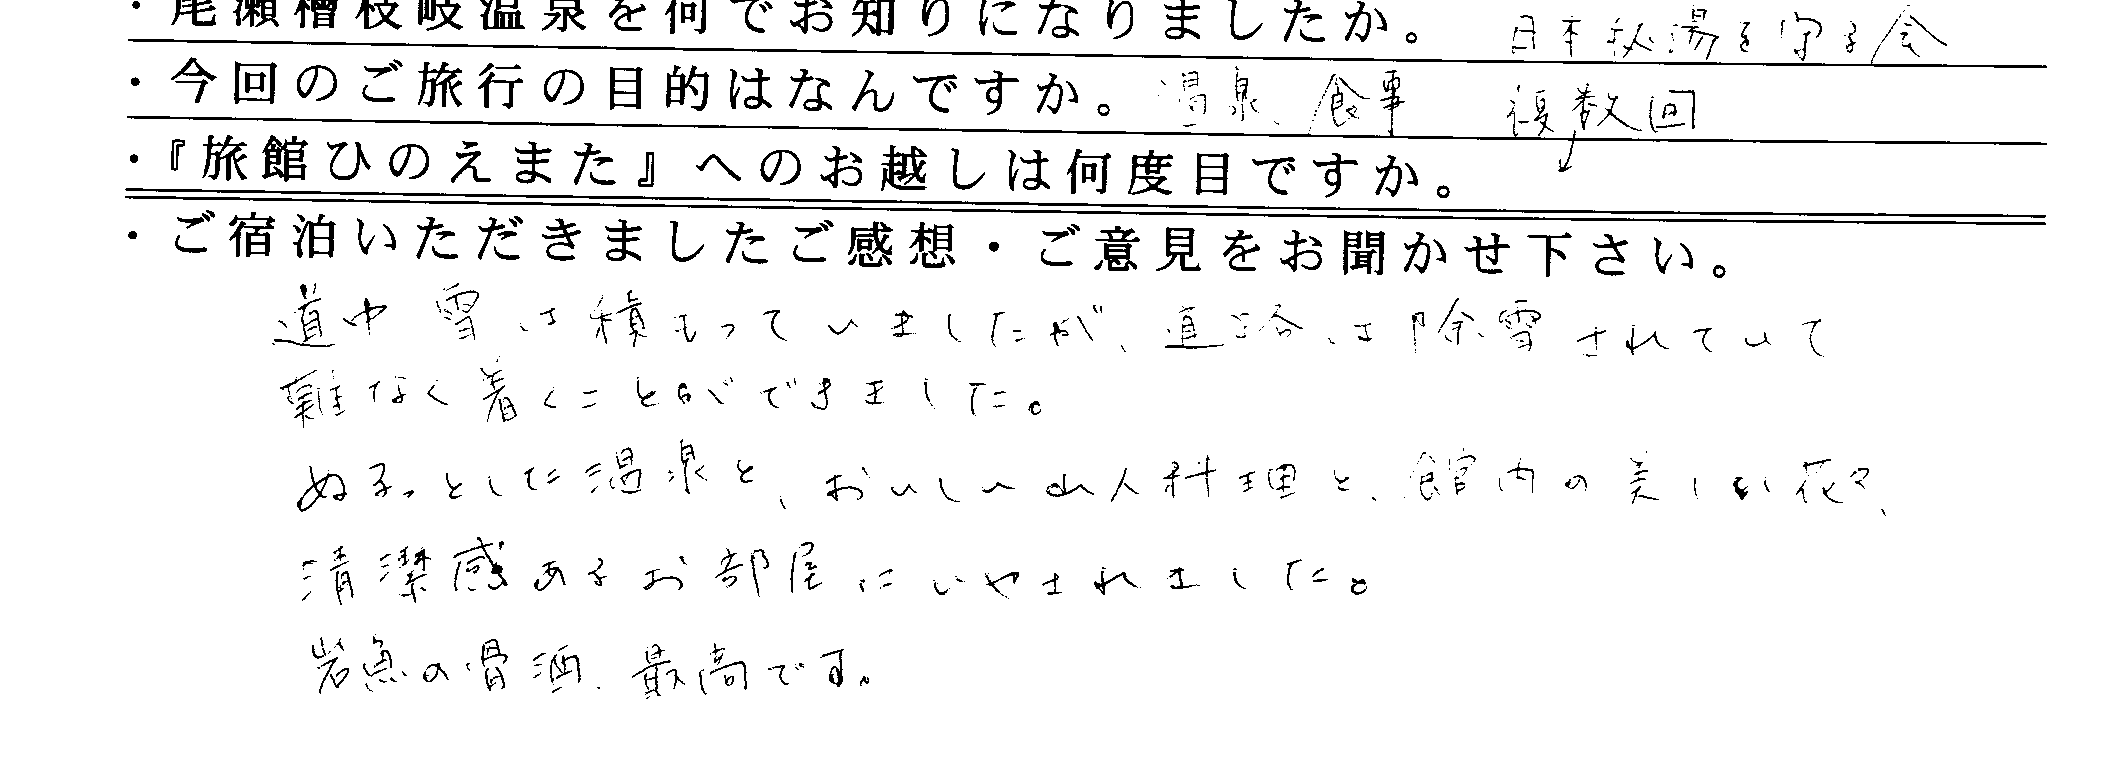 ・尾瀬檜枝岐温泉を何でお知りになりましたか。 日本秘湯を守る会
・今回のご旅行の目的はなんですか。 温泉、食事 複数回
・『旅館ひのえまた』へのお越しは何度目ですか。
・ご宿泊いただきましたご感想・ご意見をお聞かせ下さい。
道中雪は積もっていましたが、道路は除雪されていて
難なく着くことができました。
ぬるっとした温泉と、おいしい山人料理と、館内の美しい花々、
清潔感あるお部屋にいやされました。
岩魚の骨酒、最高です。